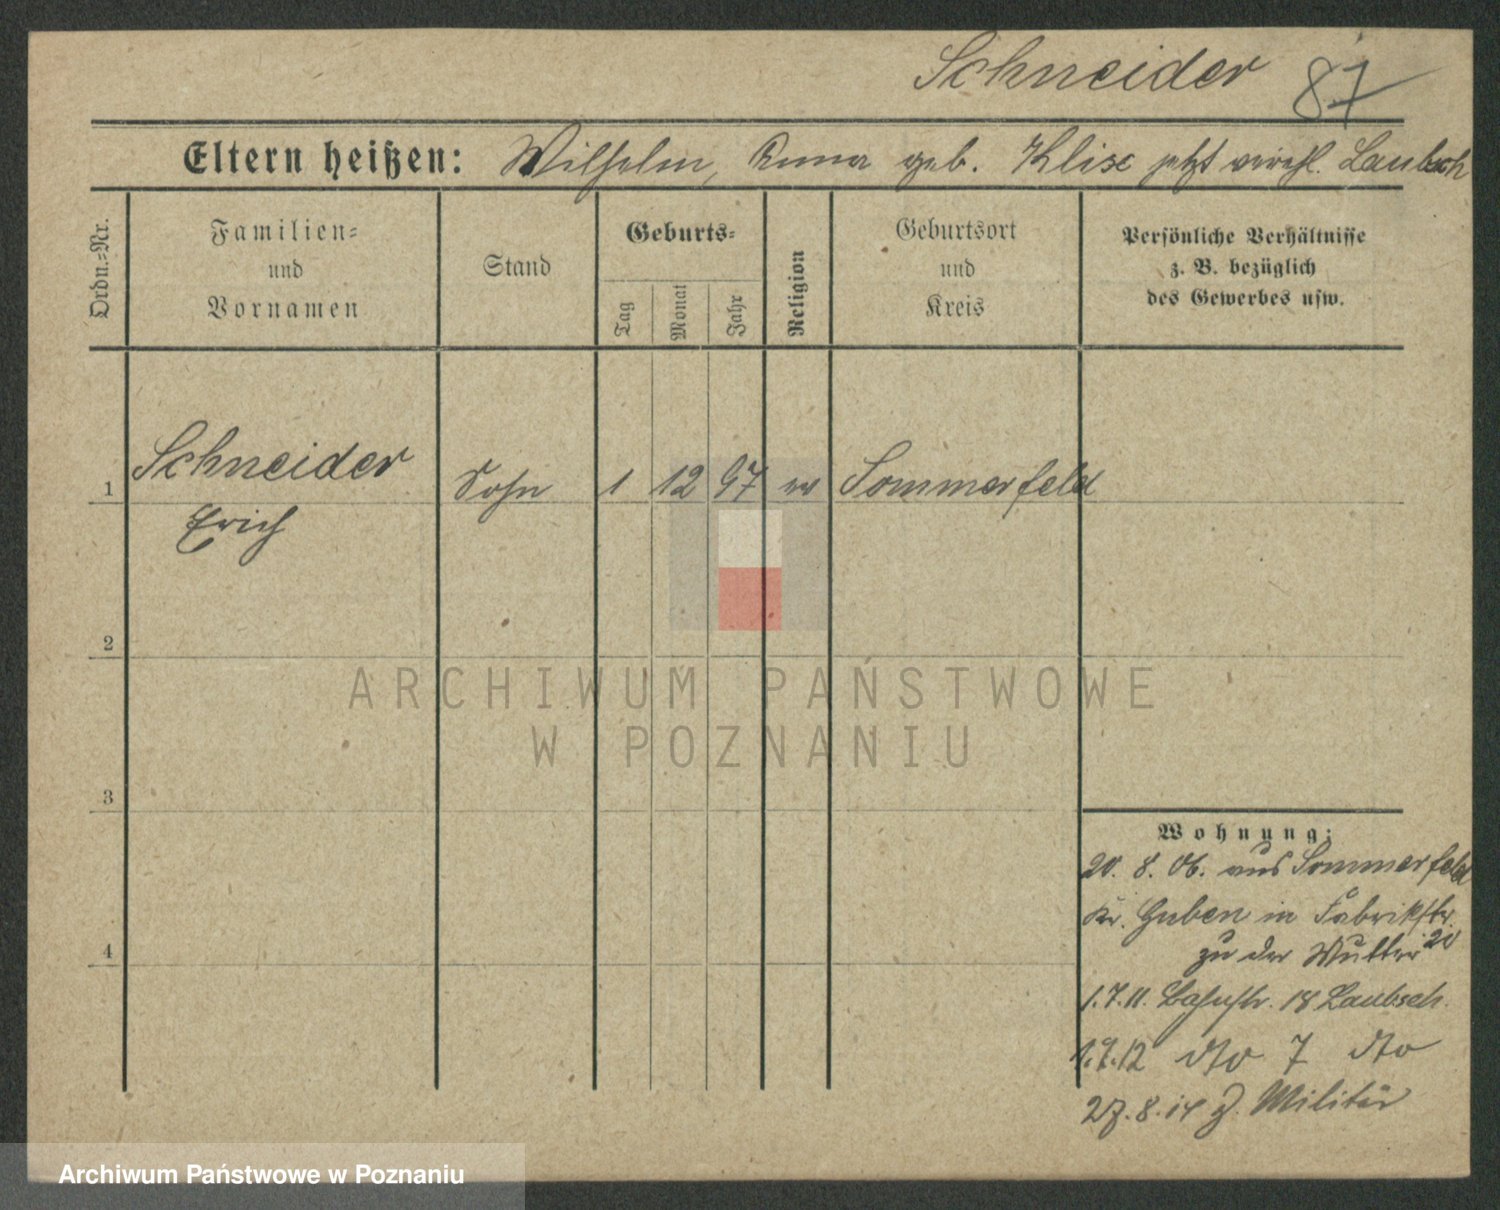 Schneider 87
Eltern heißen: Wilhelm, Anna geb. Klix jetzt verehl. Laubsch
Ordn.-Nr.
Familien-
und
Vornamen
Stand
Geburts-
Tag
Monat
Jahr
Religion
Geburtsort
und
Kreis
Persönliche Verhältnisse
z. B. bezüglich
des Gewerbes usw.
1 Schneider Sohn 1 12 97 ev Sommerfeld
Erich
2
3
4
Wohnung:
20. 8. 06. aus Sommerfeld
Kr. Guben in Fabrikstr. 20
zu der Mutter
1.7.11. Bahnstr. 18 Laubsch.
1.9.12 dto 7 dto
27.8.14 z. Militär
ARCHIWUM PAŃSTWOWE
W POZNANIU
Archiwum Państwowe w Poznaniu